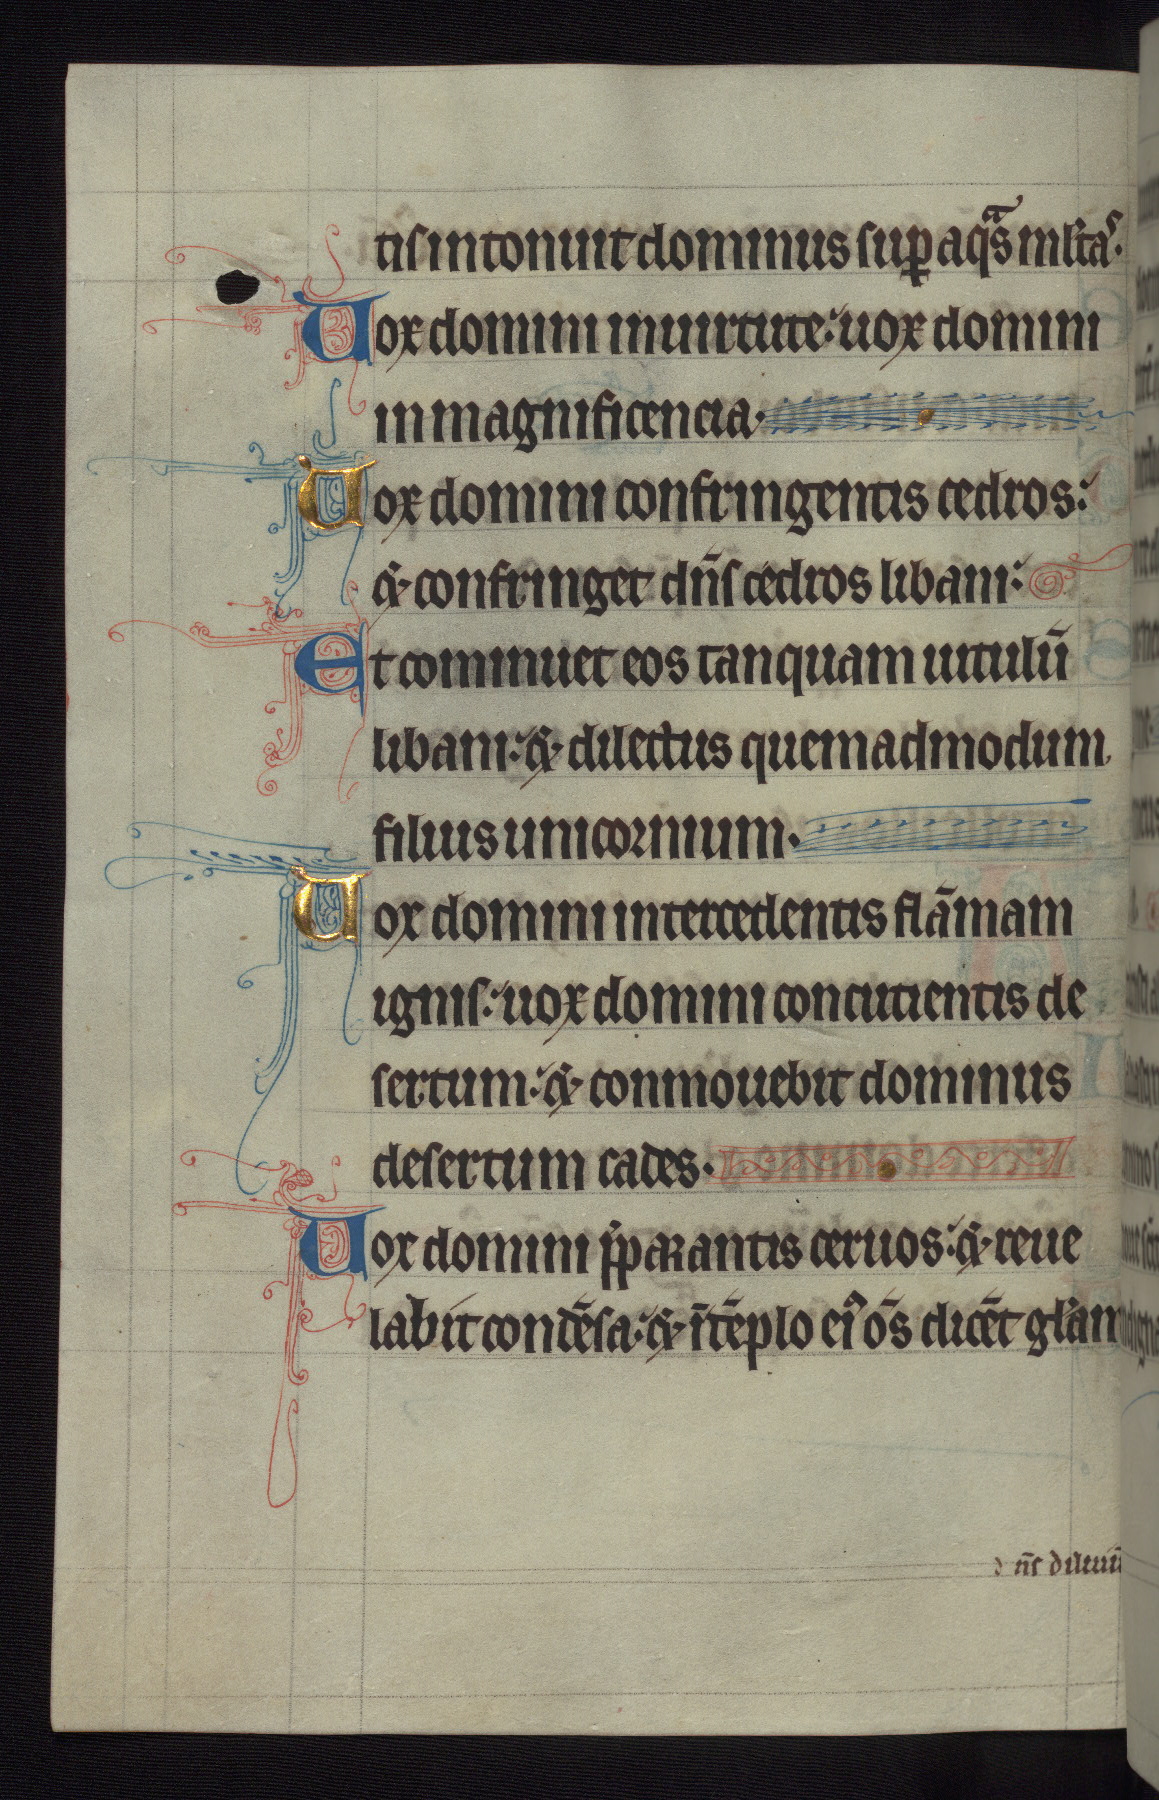 tis intonuit dominus sup aqᵃs ml'taˢ.
Uox domini inuirtute: uox domini
in magnificencia.
Uox domini confringentis cedros:
⁊ confringet dn̄s cedros libani:
Et cominuet eos tanquam uitulū
libani: ⁊ dilectus quemadmodum
filius unicornium.
Uox domini intercedentis flāmam
ignis: uox domini concutientis de
sertum: ⁊ conmouebit dominus
desertum cades.
Uox domini p̄parantis ceruos: ⁊ reue
labit condēsa: ⁊ ī tēplo eiꝰ ōs dicēt gl'am
dn̄s diluuiū